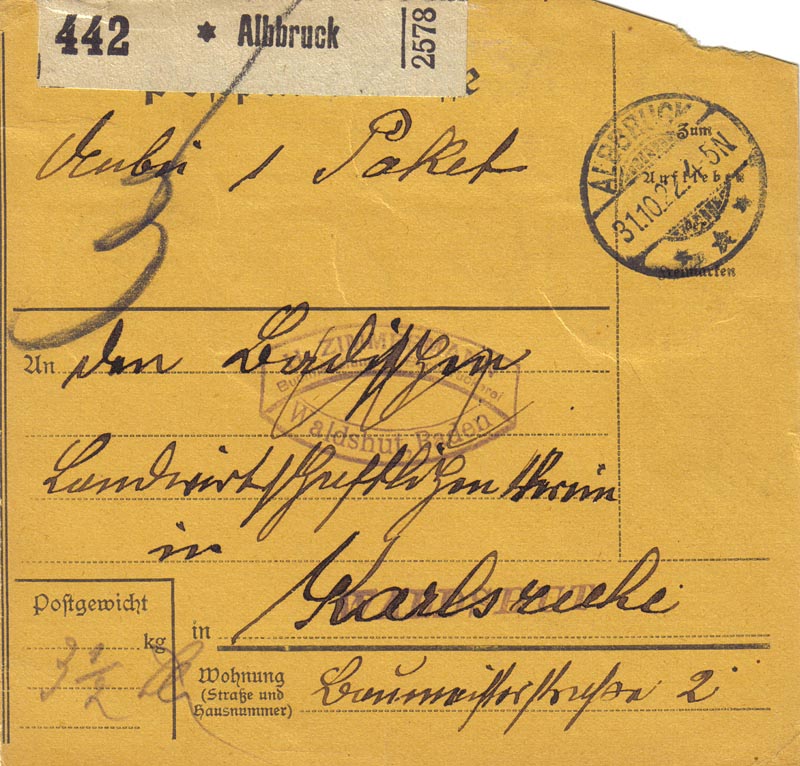 442 * Albbruck 2578
Anbei 1 Paket
ALBBRUCK
31.10.22.4-5N
Zum
Aufkleben
der
Freimarken
An den Badischen
ZIMMERMANN
Waldshut, Baden
Landwirtschaftlichen Verein
in
Postgewicht
kg
3 1/2
in Karlsruhe
WALDSHUT
Wohnung
(Straße und
Hausnummer)
Baumeisterstraße 2
3